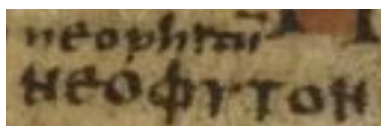 neophitū
ΝΕΟΦΥΤΟΝ